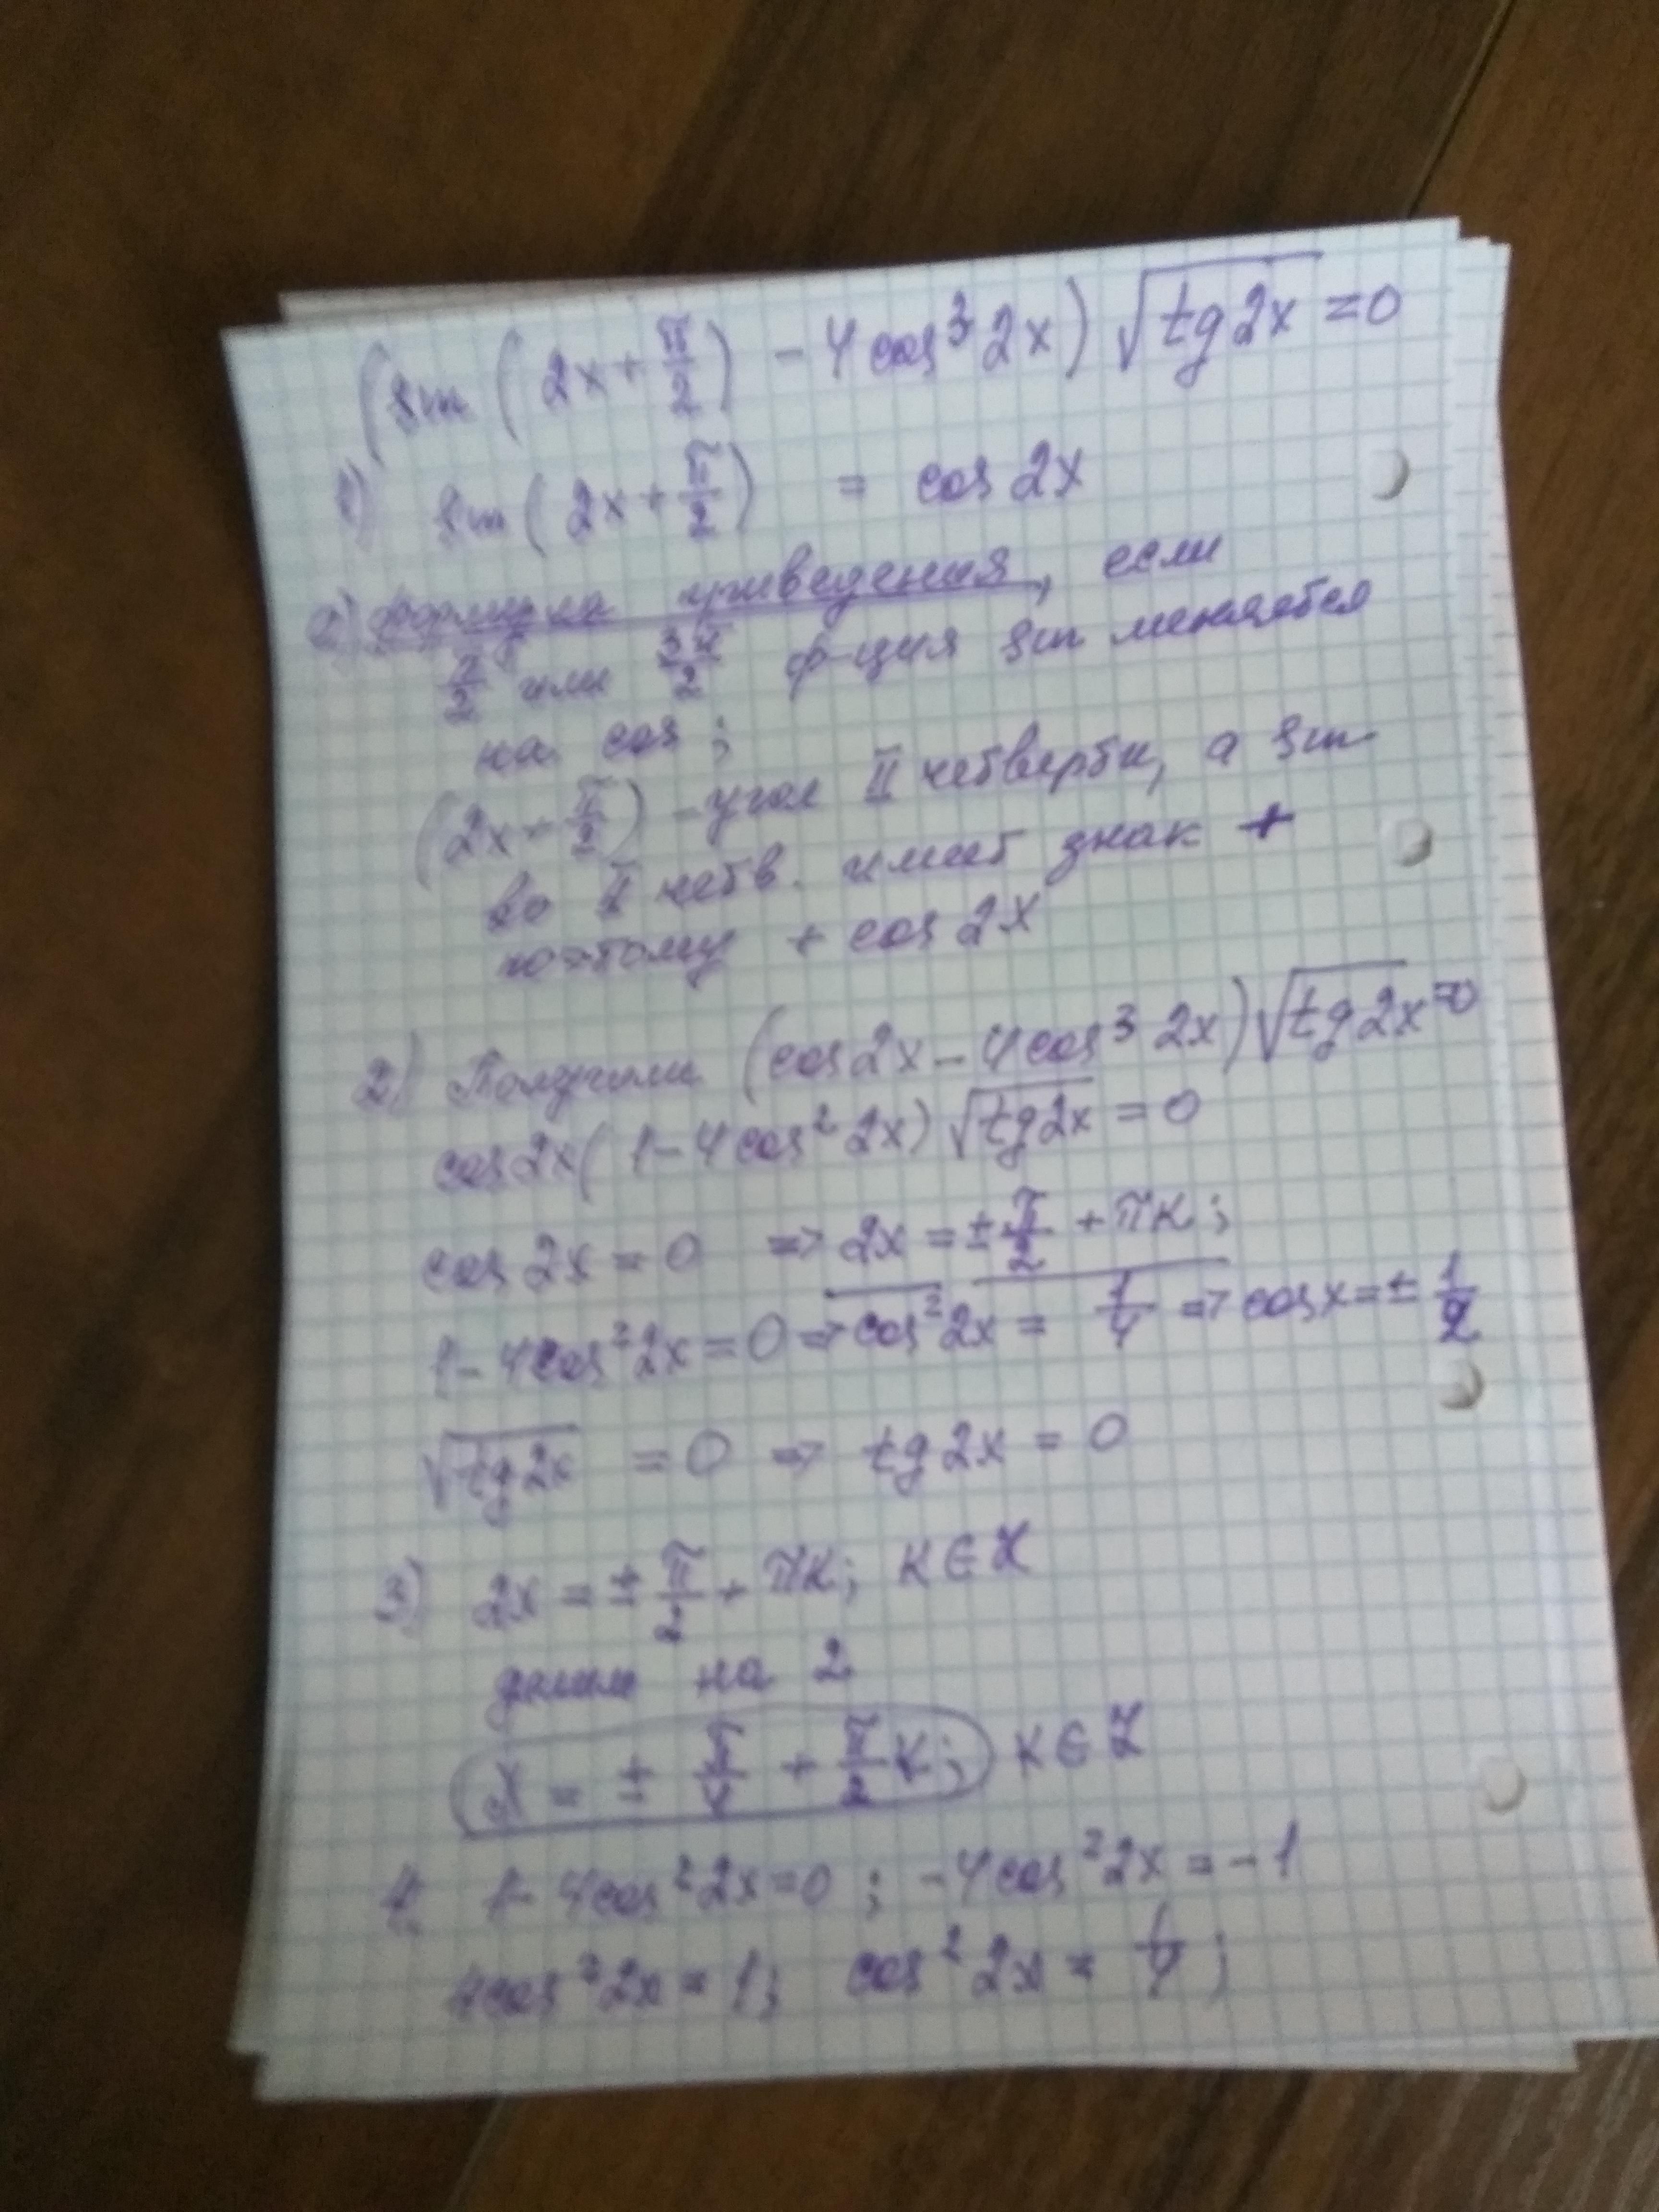 (sin(2x+π/2) - 4cos³2x)√tg2x =0
1) sin(2x+π/2) = cos 2x
а) формула приведения, если
π/2 или 3π/2 ф-ция sin меняется
на cos;
(2x+π/2) - угол II четверти, а sin
во II четв. имеет знак +
поэтому + cos 2x
2) Получили (cos2x-4cos³2x)√tg2x=0
cos2x(1-4cos²2x)√tg2x=0
cos2x=0 => 2x=±π/2+πк;
1-4cos²2x=0=>cos²2x=1/4=>cosx=±1/2
√tg2x =0 => tg2x=0
3) 2x=±π/2+πк; к∈Z
делим на 2
x=±π/4+π/2к; к∈Z
4. 1-4cos²2x=0; -4cos²2x=-1
4cos²2x=1; cos²2x=1/4;